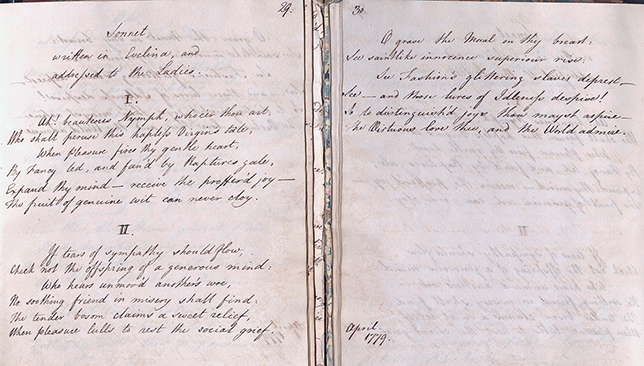 29.
Sonnet,
written in Evelina, and
addressed to the Ladies.
I.
Ah! beauteous Nymph, whoe'er thou art,
Who shall peruse this hapless Virgin's tale,
When pleasure fires thy gentle heart,
By Fancy led, and fan'd by Raptures gale,
Expand thy mind — receive the proffer'd joy —
The fruit of genuine wit can never cloy.
II.
If tears of sympathy should flow,
Check not the offspring of a generous mind:
Who hears unmov'd another's woe,
No soothing friend in misery shall find:
The tender bosom claims a sweet relief,
When pleasure lulls to rest the social grief.
30
O grave the Moral on thy breast:
See saintlike innocence superiour rise:
See Fashion's glittering slaves deprest —
See — and those lures of Idleness despise!
So to distinguish'd joys thou mayst aspire —
The Virtuous love thee, and the World admire.
April
1779.